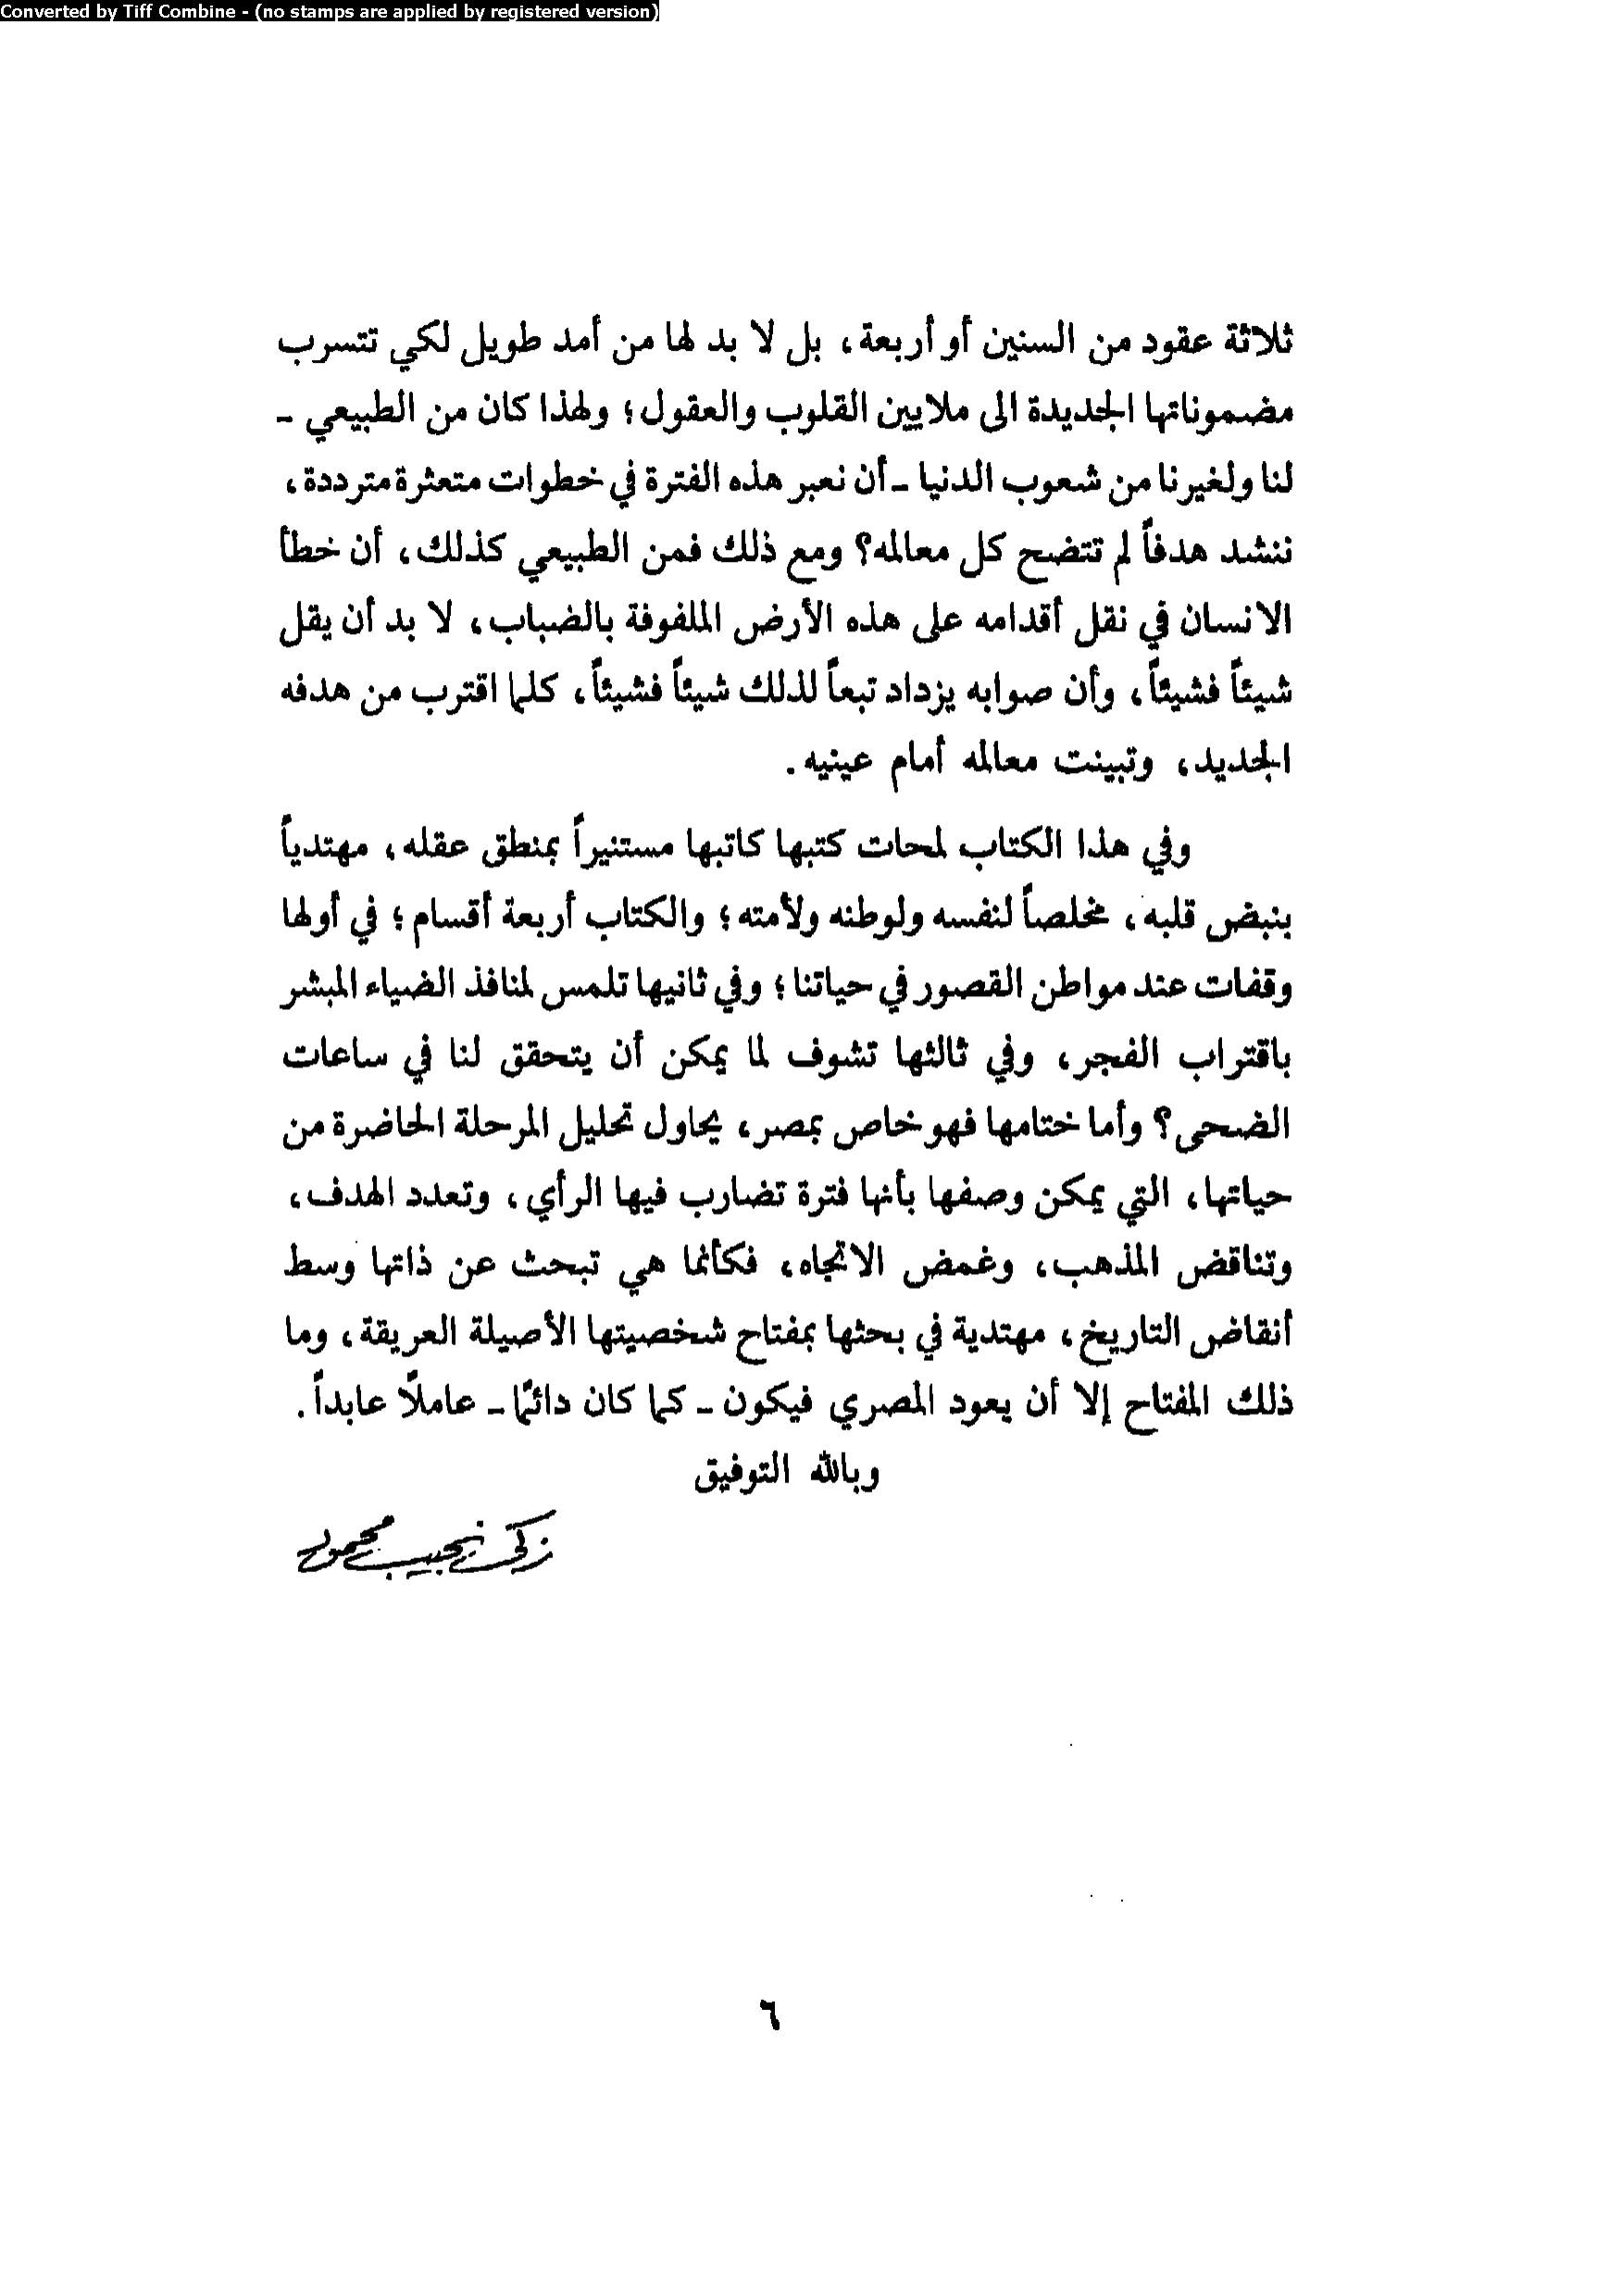 Converted by Tiff Combine - (no stamps are applied by registered version)
ثلاثة عقود من السنين أو أربعة، بل لا بد لها من أمد طويل لكي تتسرب
مضموناتها الجديدة الى ملايين القلوب والعقول؛ ولهذا كان من الطبيعي -
لنا ولغيرنا من شعوب الدنيا - أن نعبر هذه الفترة في خطوات متعثرة مترددة،
ننشد هدفاً لم تتضح كل معالمه؟ ومع ذلك فمن الطبيعي كذلك، أن خطأ
الانسان في نقل أقدامه على هذه الأرض الملفوفة بالضباب، لا بد أن يقل
شيئاً فشيئاً، وأن صوابه يزداد تبعاً لذلك شيئاً فشيئاً، كلما اقترب من هدفه
الجديد، وتبينت معالمه أمام عينيه.
وفي هذا الكتاب لمحات كتبها كاتبها مستنيراً بمنطق عقله، مهتدياً
بنبض قلبه، مخلصاً لنفسه ولوطنه ولأمته؛ والكتاب أربعة أقسام؛ في أولها
وقفات عند مواطن القصور في حياتنا؛ وفي ثانيها تلمس لمنافذ الضياء المبشر
باقتراب الفجر، وفي ثالثها تشوف لما يمكن أن يتحقق لنا في ساعات
الضحى؟ وأما ختامها فهو خاص بمصر، يحاول تحليل المرحلة الحاضرة من
حياتها، التي يمكن وصفها بأنها فترة تضارب فيها الرأي، وتعدد الهدف،
وتناقض المذهب، وغمض الاتجاه، فكأنما هي تبحث عن ذاتها وسط
أنقاض التاريخ، مهتدية في بحثها بمفتاح شخصيتها الأصيلة العريقة، وما
ذلك المفتاح إلا أن يعود المصري فيكون - كما كان دائمًا - عاملًا عابداً.
وبالله التوفيق
زكي نجيب محمود
٦